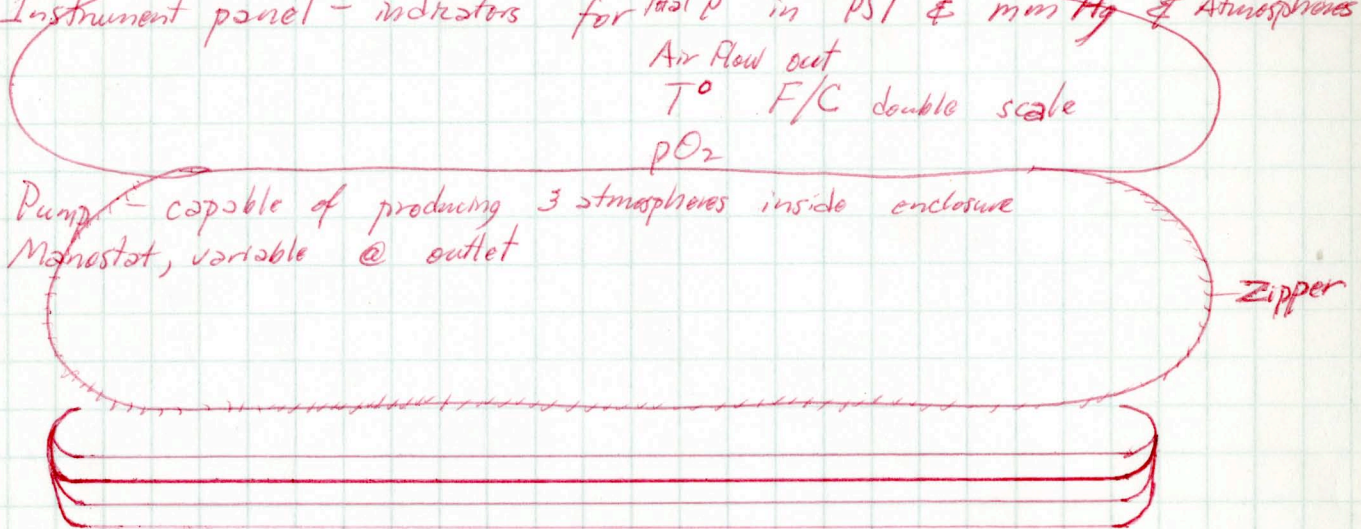 Instrument panel - indicators for total P in PSI & mm Hg & Atmospheres
Air Flow out
T° F/C double scale
pO₂
Pump - capable of producing 3 atmospheres inside enclosure
Manostat, variable @ outlet
Zipper